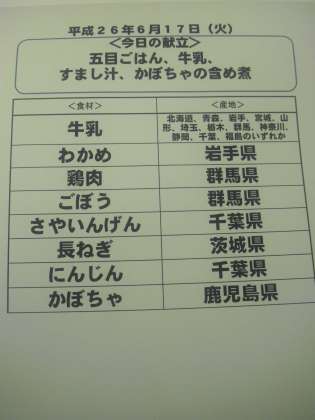 平成26年6月17日(火)
<今日の献立>
五目ごはん、牛乳、
すまし汁、かぼちゃの含め煮
<食材> <産地>
牛乳 北海道、青森、岩手、宮城、山
形、埼玉、栃木、群馬、神奈川、
静岡、千葉、福島のいずれか
わかめ 岩手県
鶏肉 群馬県
ごぼう 群馬県
さやいんげん 千葉県
長ねぎ 茨城県
にんじん 千葉県
かぼちゃ 鹿児島県